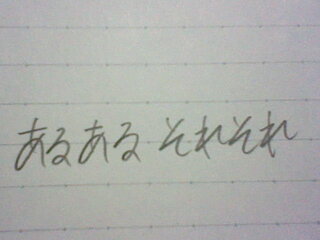 あるある それそれ